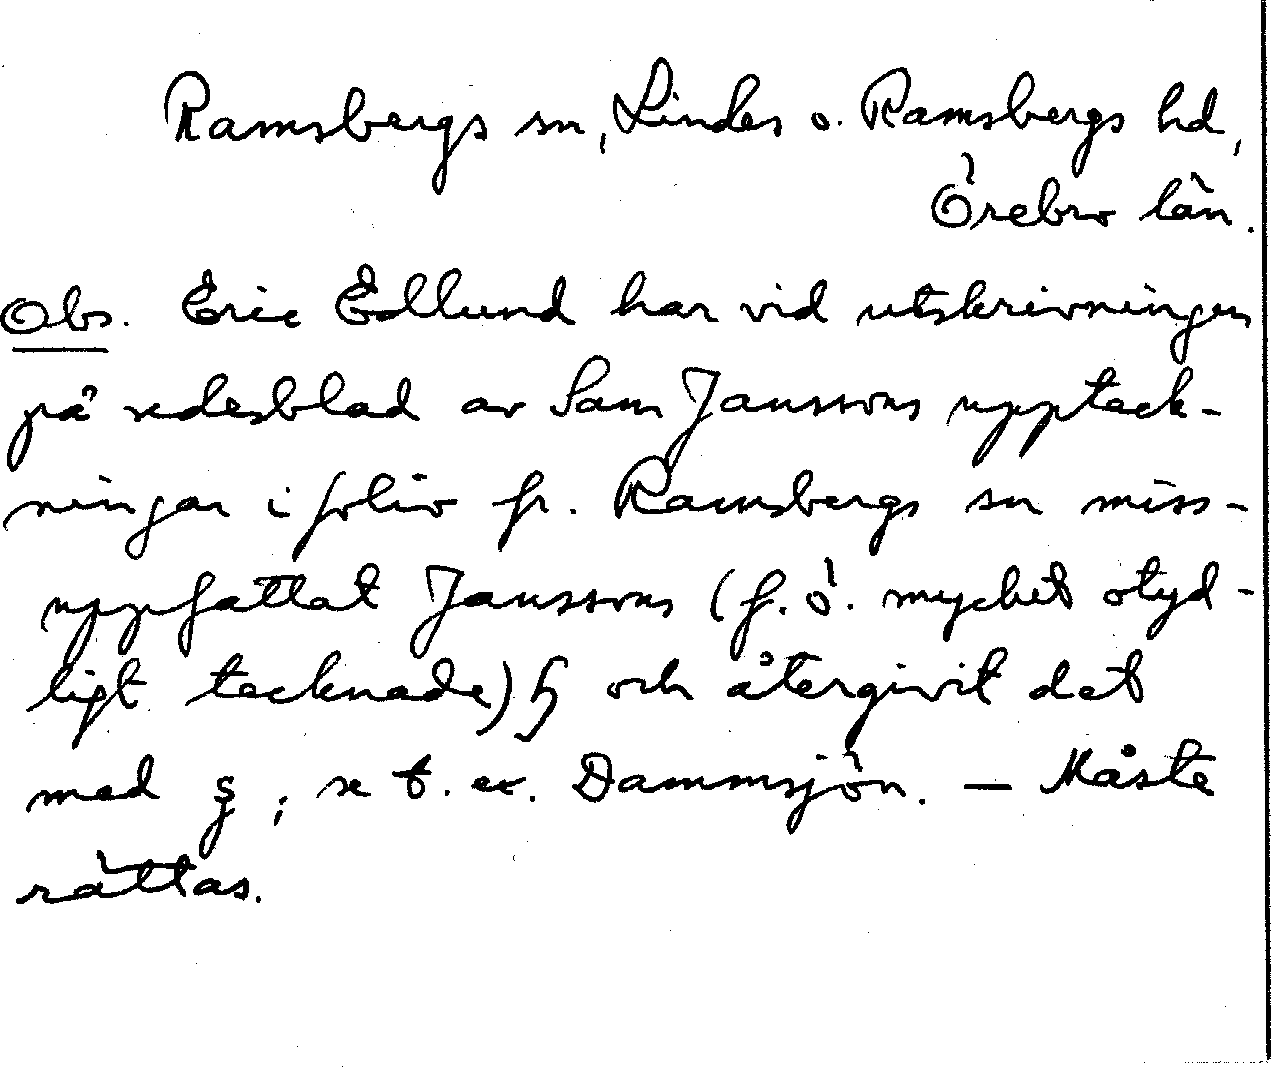 Ramsbergs sn, Lindes o. Ramsbergs hd,
Örebro län.
Obs. Eric Edlund har vid utskrivningen
på sedesblad av Sam Janssons uppteck-
ningar i folio fr. Ramsbergs sn miss-
uppfattat Janssons (f. ö. mycket otyd-
ligt tecknade) ɧ och återgivit det
med ş, se t. ex. Dammsjön. — Måste
rättas.